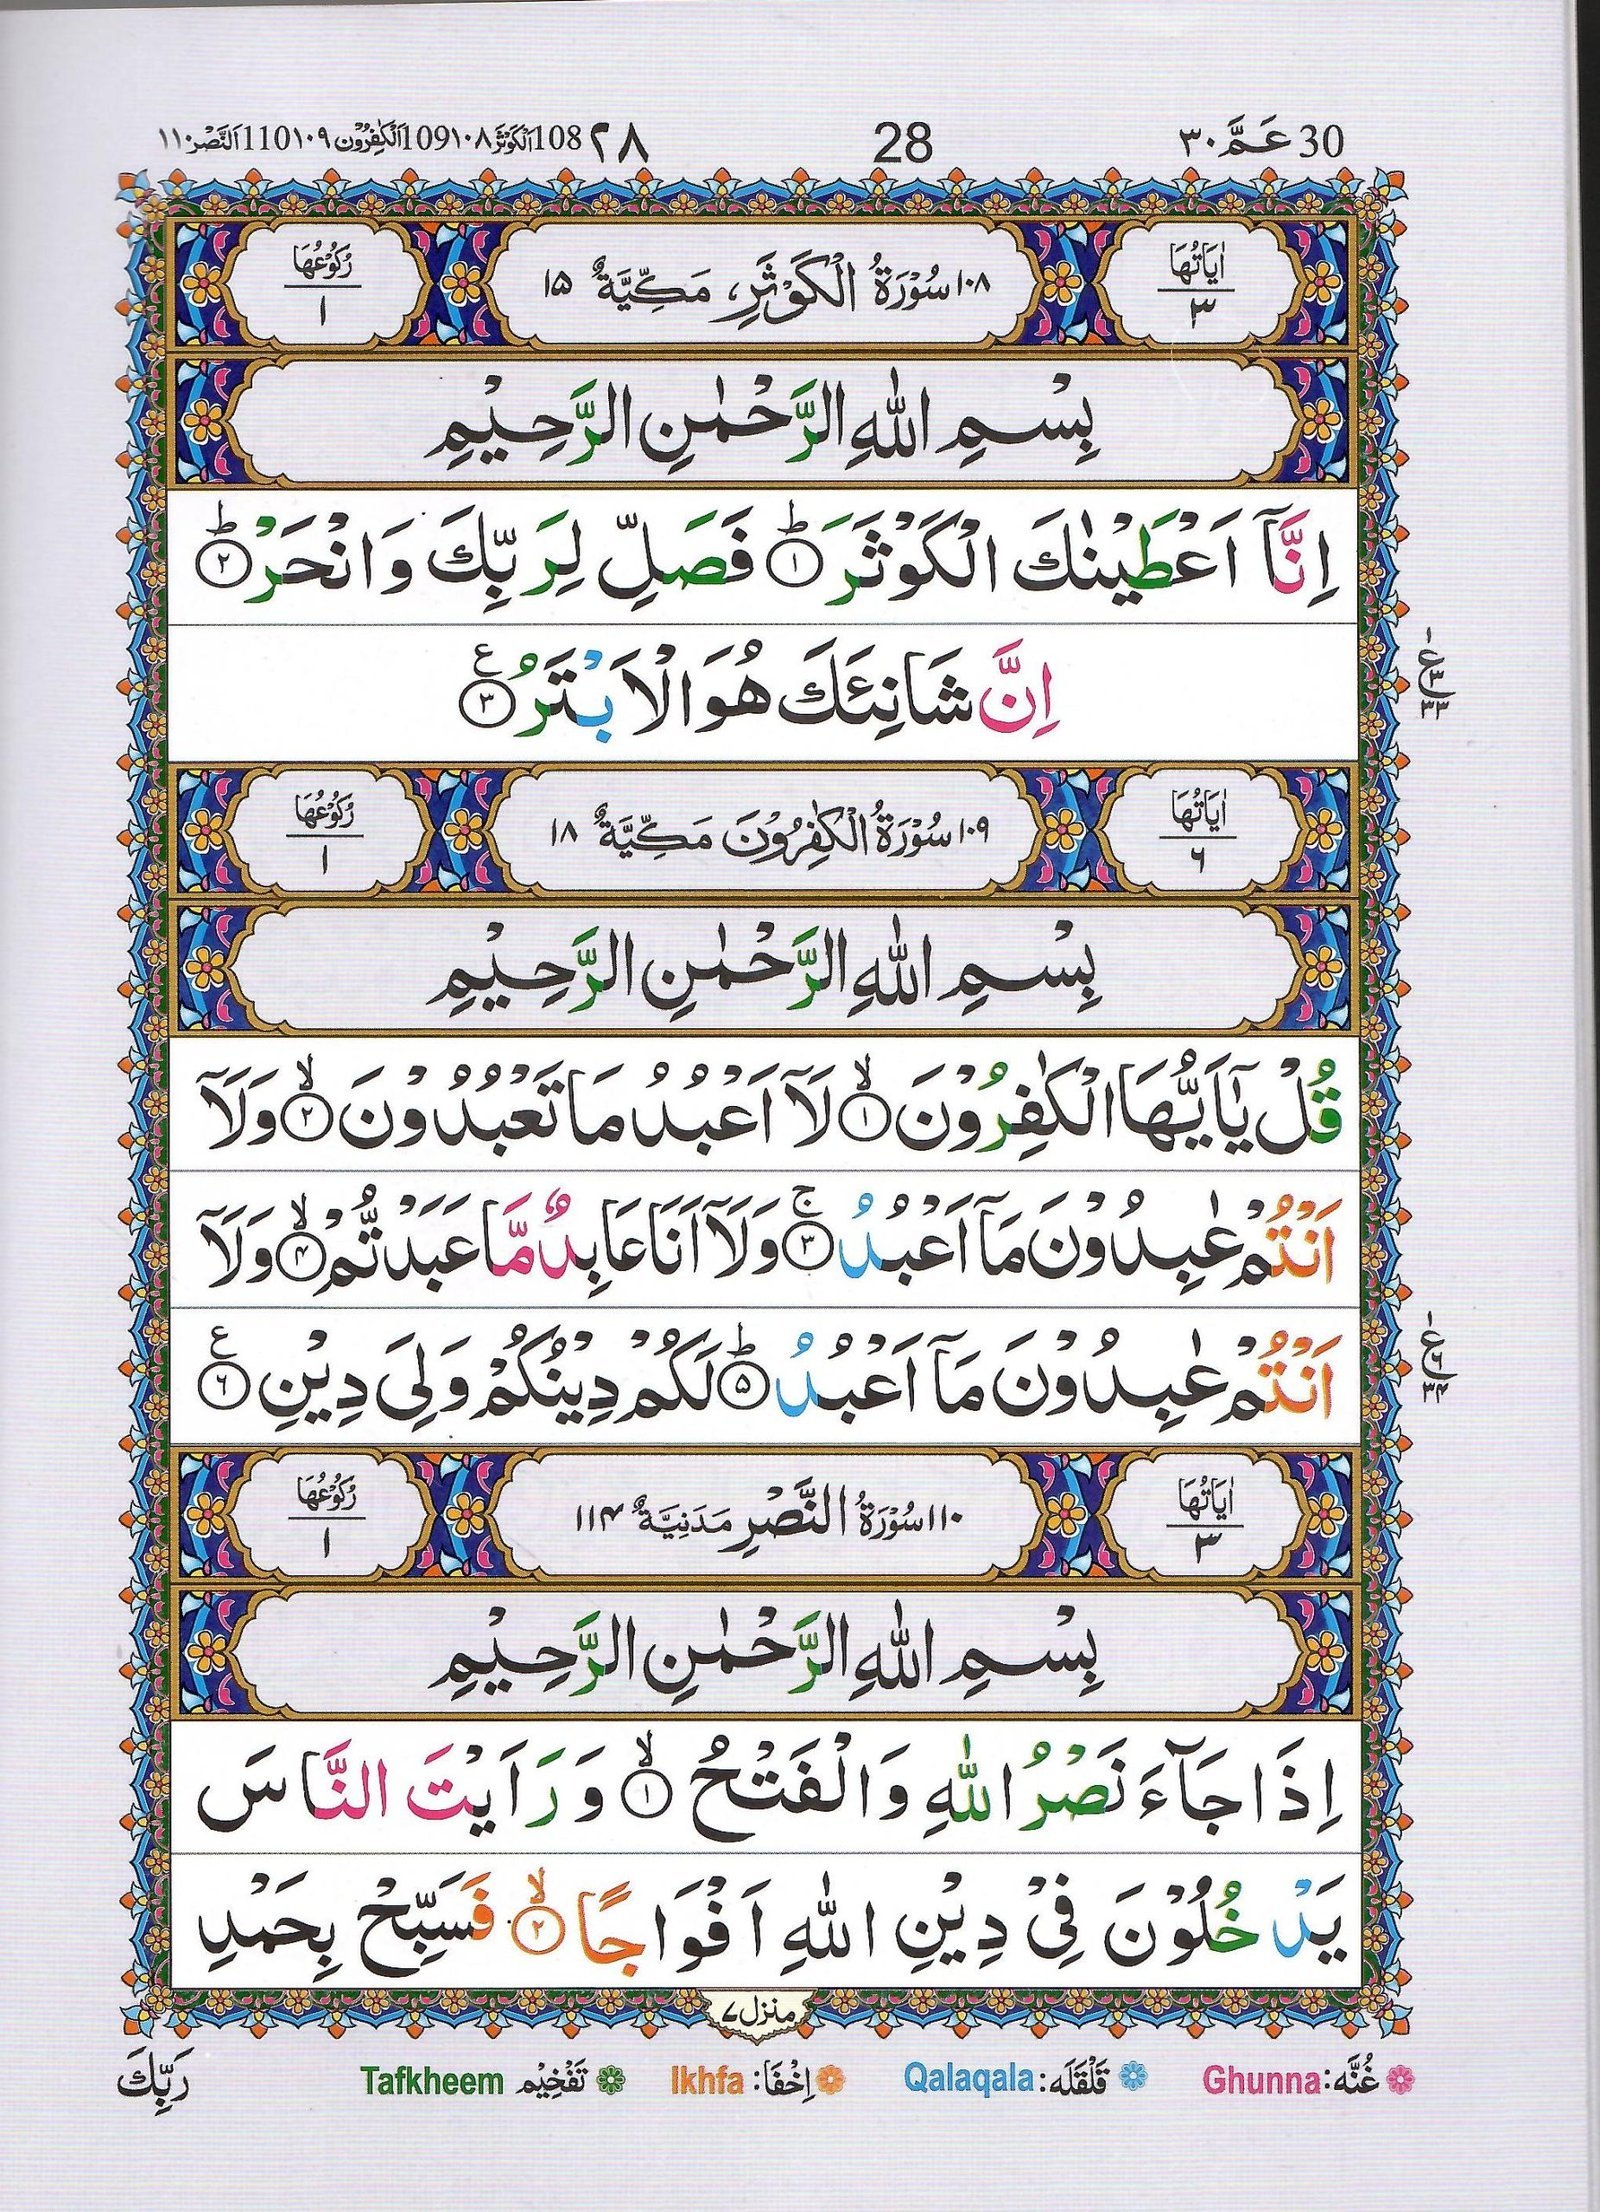 30 عَمَّ ٣٠ 28 ٢٨ 108 اَلْكَوْثَر ١٠٨ 109 اَلْكٰفِرُوْن ١٠٩ 110 اَلنَّصْر ١١٠
اٰيَاتُهَا ٣ ١٠٨ سُوْرَةُ الْكَوْثَرِ، مَكِّيَّةٌ ١٥ رُكُوْعُهَا ١
بِسْمِ اللّٰهِ الرَّحْمٰنِ الرَّحِيْمِ
اِنَّآ اَعْطَيْنٰكَ الْكَوْثَرَ ؕ‏﴿١﴾ فَصَلِّ لِرَبِّكَ وَانْحَرْ ؕ‏﴿٢﴾
اِنَّ شَانِئَكَ هُوَ الْاَبْتَرُ ﴿٣﴾ ع
ع ٣ ٣٣
اٰيَاتُهَا ٦ ١٠٩ سُوْرَةُ الْكٰفِرُوْنَ مَكِّيَّةٌ ١٨ رُكُوْعُهَا ١
بِسْمِ اللّٰهِ الرَّحْمٰنِ الرَّحِيْمِ
قُلْ يٰٓاَيُّهَا الْكٰفِرُوْنَ ۙ‏﴿١﴾ لَآ اَعْبُدُ مَا تَعْبُدُوْنَ ۙ‏﴿٢﴾ وَلَآ
اَنْتُمْ عٰبِدُوْنَ مَآ اَعْبُدُ ۚ‏﴿٣﴾ وَلَآ اَنَا عَابِدٌ مَّا عَبَدْتُّمْ ۙ‏﴿٤﴾ وَلَآ
اَنْتُمْ عٰبِدُوْنَ مَآ اَعْبُدُ ؕ‏﴿٥﴾ لَكُمْ دِيْنُكُمْ وَلِىَ دِيْنِ ﴿٦﴾ ع
ع ٦ ٣٤
اٰيَاتُهَا ٣ ١١٠ سُوْرَةُ النَّصْرِ مَدَنِيَّةٌ ١١٤ رُكُوْعُهَا ١
بِسْمِ اللّٰهِ الرَّحْمٰنِ الرَّحِيْمِ
اِذَا جَآءَ نَصْرُ اللّٰهِ وَالْفَتْحُ ۙ‏﴿١﴾ وَرَاَيْتَ النَّاسَ
يَدْخُلُوْنَ فِىْ دِيْنِ اللّٰهِ اَفْوَاجًا ۙ‏﴿٢﴾ فَسَبِّحْ بِحَمْدِ
منزل ٧
غُنَّه: Ghunna قَلْقَلَه: Qalaqala اِخْفَا: Ikhfa تَفْخِيْم Tafkheem رَبِّكَ